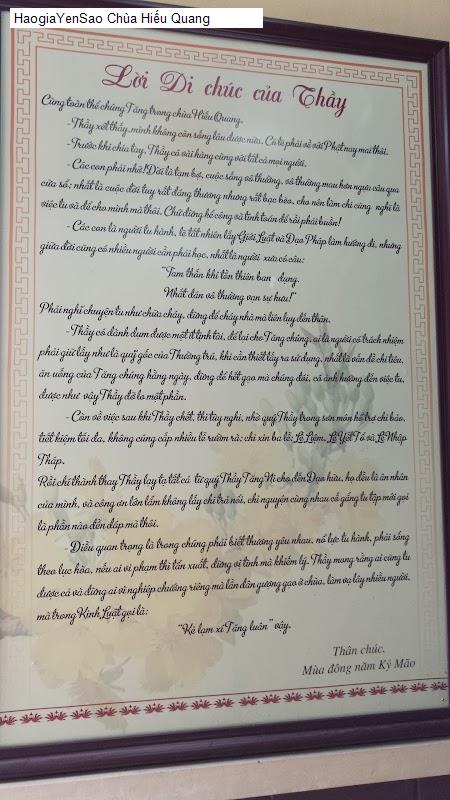 HaogiaYenSao Chùa Hiếu Quang
Lời Di chúc của Thầy
Cùng toàn thể chúng Tăng trong chùa Hiếu Quang.
-Thầy xét thấy, mình không còn sống lâu được nữa. Có lẽ phải về với Phật nay mai thôi.
-Trước khi chia tay, Thầy có vài hàng cùng với tất cả mọi người.
- Các con phải nhớ! Đời là tạm bợ, cuộc sống vô thường, vô thường mau hơn ngựa câu qua
cửa sổ; nhất là cuộc đời tuy rất đáng thương nhưng rất bạc bẽo, cho nên làm chi cũng nghĩ là
việc tu và để cho mình mà thôi. Chứ đừng kể công và tính toán để rồi phải buồn!
- Các con là người tu hành, lẽ tất nhiên lấy Giới Luật và Đạo Pháp làm hướng đi, nhưng
giữa đời cũng có nhiều người cần phải học, nhất là người xưa có câu:
"Tam thốn khí tồn thiên ban dụng.
Nhất đán vô thường vạn sự hưu!"
Phải nghĩ chuyện tu như chữa cháy, đừng để cháy nhà mà liên lụy đến thân.
-Thầy có dành dụm được một ít tịnh tài, để lại cho Tăng chúng, ai là người có trách nhiệm
phải giữ lấy như là quỹ gốc của Thường trú, khi cần thiết lấy ra sử dụng, nhất là vấn đề chi tiêu,
ăn uống của Tăng chúng hằng ngày, đừng để hết gạo mà chúng đói, có ảnh hưởng đến việc tu,
được như vậy Thầy đỡ lo một phần.
- Còn về việc sau khi Thầy chết, thì tùy nghi, nhờ quý Thầy trong sơn môn hỗ trợ chỉ bảo,
tiết kiệm tối đa, không cúng cấp nhiều lễ rườm rà; chỉ xin ba lễ: Lễ Liệm, Lễ Yết Tổ và Lễ Nhập
Tháp.
Rồi chí thành thay Thầy lạy tạ tất cả từ quý Thầy Tăng Ni cho đến Đạo hữu, họ đều là ân nhân
của mình, và công ơn lớn lắm không lấy chi trả nổi, chỉ nguyện cùng nhau cố gắng tu tập mới gọi
là phần nào đền đáp mà thôi.
Điều quan trọng là trong chúng phải biết thương yêu nhau, nỗ lực tu hành, phải sống
theo lục hòa, nếu ai vi phạm thì tẩn xuất, đừng vị tình mà khiếm lý. Thầy mong rằng ai cũng tu
được cả và đừng ai vì nghiệp chướng riêng mà lần dần gượng gạo ở chùa, làm vạ lây nhiều người,
mà trong Kinh Luật gọi là:
"Kẻ lạm xí Tăng luân" vậy.
Thân chúc.
Mùa đông năm Kỷ Mão